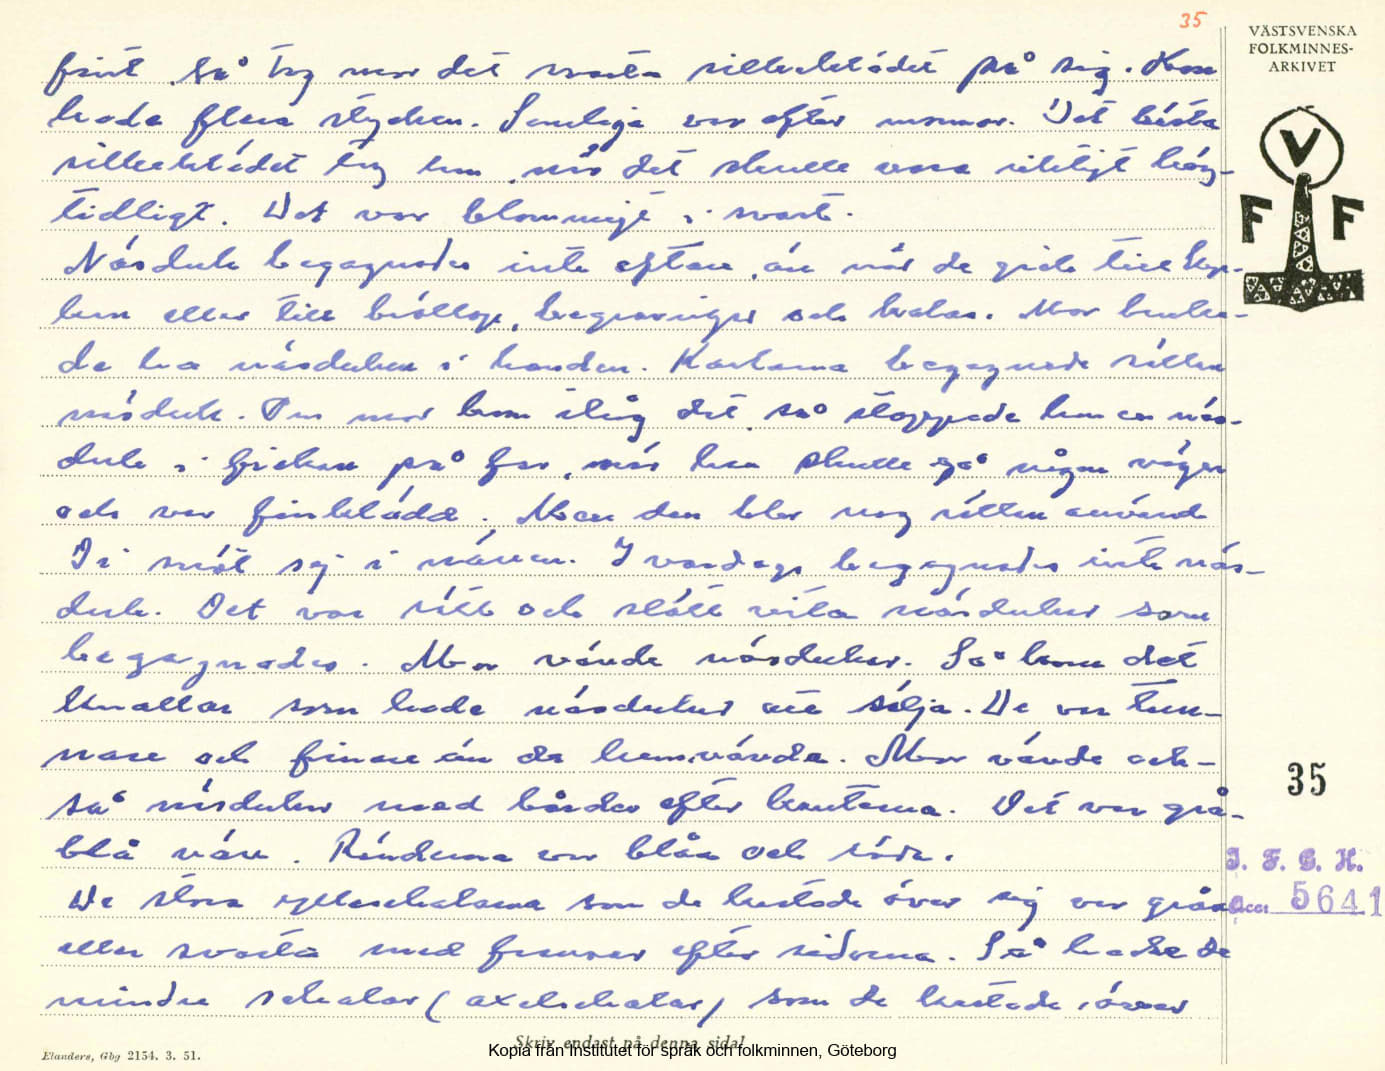 35
VÄSTSVENSKA
FOLKMINNES-
ARKIVET
V
F F
fint, så tog mor det svarta silkeklädet på sig. Hon
hade flera stycken. Somliga var efter mormor. Det bästa
silkeklädet tog hon, när det skulle vara riktigt hög-
tidligt. Det var blommigt i svart.
Näsduk begagnades inte oftare, än när de gick till kyr-
kan eller till bröllop, begravninger och kalas. Mor bruka-
de ha näsduken i handen. Karlarna begagnade sällan
näsduk. Om mor kom ihåg det, så stoppade hon en näs-
duk i fickan på far, när han skulle gå någon vägen
och var finklädd. Men den blev nog sällan använd
De snöt sej i näven. I vardags begagnades inte näs-
duk. Det var rätt och slätt vita näsdukar som
begagnades. Mor vävde näsdukar. Så kom det
knallar som hade näsdukar att sälja. De var tun-
nare och finare än de hemvävda. Mor vävde ock-
så näsdukar med bårder efter kanterna. Det var grå-
blå väv. Ränderna var blåa och röda.
De stora ylleschalarna som de hastade över sig var gråa
eller svarta med fransar efter sidorna. Så hade de
mindre schalar (axelschalar) som de hastade över
35
I. F. G. H.
Acc: 5641
Elanders, Gbg 2154. 3. 51.
Skriv endast på denna sida!
Kopia från Institutet för språk och folkminnen, Göteborg